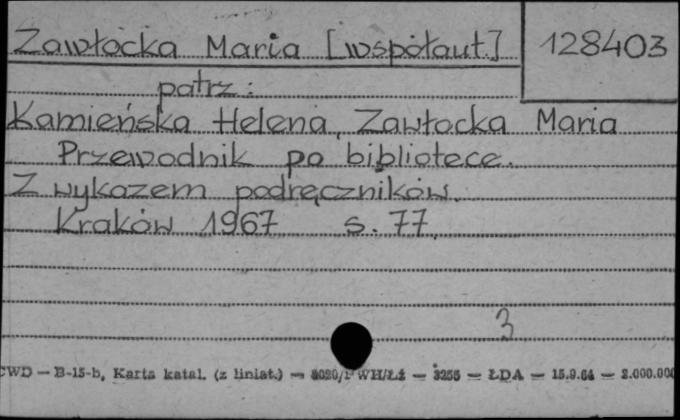 Zawłocka Maria [współaut.] 128403
patrz:
Kamieńska Helena, Zawłocka Maria
Przewodnik po bibliotece.
Z wykazem podręczników.
Kraków 1967 s. 77
3
CWD — B-15-b, Karta katal. (z liniat.) — WH/Łż — 3255 — ŁDA — 15.9.64 — 2.000.000